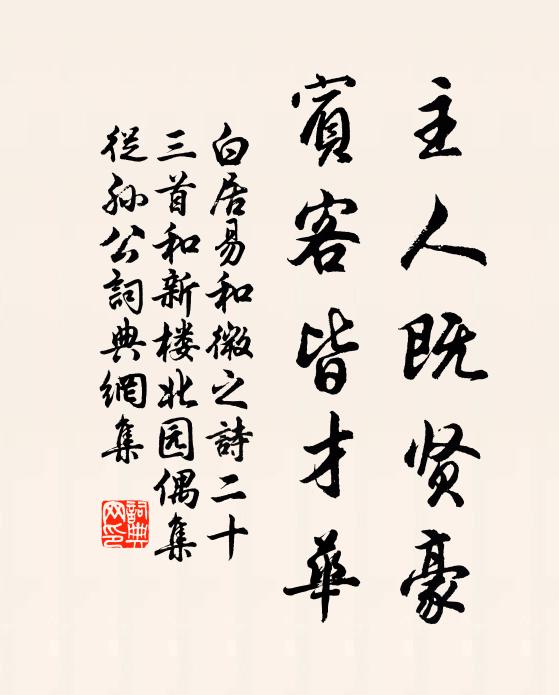 主人既贤豪
賓客皆才華
白居易和微之詩二十
三首和新楼北园偶集
從孙公詞典網集
詞典网印